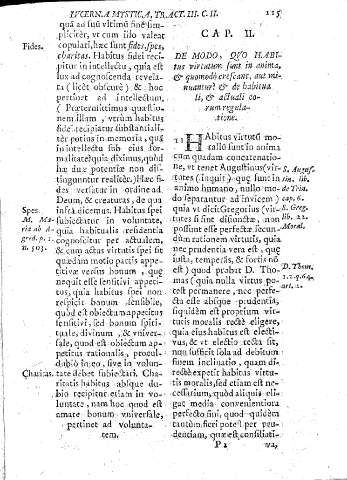 LVCERNA MYSTICA, TRACT. III. C. II. 225
quã ad suũ vltimũ finẽ sim-
pliciter, vt cum illo valeat
copulari, hæc sunt fides, spes,
charitas. Habitus fidei reci-
pitur in intellectu, quia est
lux ad cognoscenda revela-
ta (licèt obscurè) & hoc
pertinet ad intellectum,
(Prætermittimus quæstio-
nem illam, vtrùm habitus
fidei recipiatur substantiali-
tèr potius in memoria, quá
in intellectu sub eius for-
malitate) quia diximus, quòd
hæ duæ potentiæ non dis-
tinguuntur realitèr.) Hæc fi-
des versatur in ordine ad
Deum, & creaturas, de qua
infrá dicemus. Habitus spei
subiectatur in voluntate,
quia habitualis residentia
cognoscitur per actualem,
& cum actus virtutis spei sit
quædam motio partis appe-
titivæ versùs bonum, quæ
nequit esse sensitivi appeti-
tus, quia habitus spei non
respicit bonum sensibile,
quòd est obiectum appetitus
sensitivi, sed bonum spiri-
tuale, divinum, & vniver-
sale, quod est obiectum ap-
petitus rationalis, procul-
dubiò in eo, sive in volun-
tate debet subiectari. Cha-
ritatis habitus absque du-
bio recipitur etiam in vo-
luntate, nam hoc quod est
amare bonum vniversale,
pertinet ad volunta-
tem.
Fides.
Spes.
M. Ma-
ria ab A-
gred. p. 2.
n. 503.
Charitas.
CAP. II.
DE MODO, QVO HABI-
tus virtutum sunt in anima,
& quomodò crescant, aut mi-
nuantur? & de habitua
li, & actuali eo-
rum regula-
tione.
11 HAbitus virtutũ mo-
ralió sunt in anima
cum quadam concatenatio-
ne, vt tenet Augustinus (vir-
tutes (inquit) quæ sunt in
animo humano, nullo mo-
do separantur ad invicem)
quia vt dicit Gregorius (vir-
tutes si sine disiunctæ, non
possunt esse perfectæ secun-
dùm rationem virtutis, quia
nec prudentia vera est, quæ
iusta, temperãs, & fortis nõ
est) quod probat D. Tho-
mas (quia nulla virtus po-
test permanere, nec perfe-
cta esse absque prudentia,
siquidèm est proprium vir-
tutis moralis rectè eligere,
quia eius habitus est electi-
vus, & vt electio recta sit,
non sufficit sola ad debitum
finem inclinatio, quam di-
rectè expetit habitus virtu-
tis moralis, sed etiam est ne-
cessarium, quòd aliquis eli-
gat media convenientiora
perfecto fini, quod quidèm
tantùm fieri potest per pru-
dentiam, quæ est consiliati-
P 2 va,
S. Augus-
tin. lib.
de Trin.
cap. 6.
S. Greg.
lib. 22.
Moral.
D. Thom.
1. 2. q. 64.
art. 1.